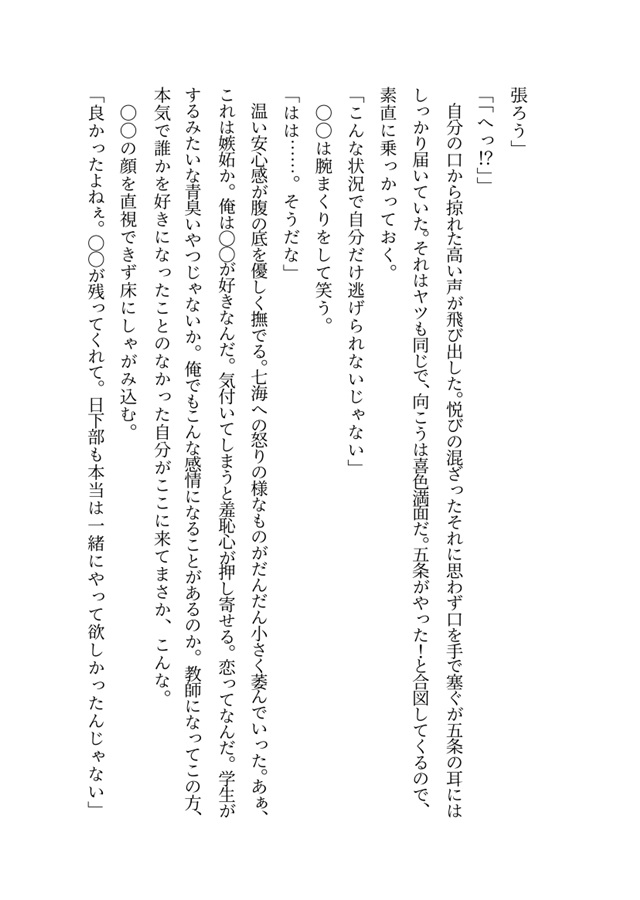 張ろう」
「「へっ!?」」
　自分の口から掠れた高い声が飛び出した。悦びの混ざったそれに思わず口を手で塞ぐが五条の耳には
しっかり届いていた。それはヤツも同じで、向こうは喜色満面だ。五条がやった！と合図してくるので、
素直に乗っかっておく。
「こんな状況で自分だけ逃げられないじゃない」
　〇〇は腕まくりをして笑う。
「はは……。そうだな」
　温い安心感が腹の底を優しく撫でる。七海への怒りの様なものがだんだん小さく萎んでいった。あぁ、
これは嫉妬か。俺は〇〇が好きなんだ。気付いてしまうと羞恥心が押し寄せる。恋ってなんだ。学生が
するみたいな青臭いやつじゃないか。俺でもこんな感情になることがあるのか。教師になってこの方、
本気で誰かを好きになったことのなかった自分がここに来てまさか、こんな。
　〇〇の顔を直視できず床にしゃがみ込む。
「良かったよねぇ。〇〇が残ってくれて。日下部も本当は一緒にやって欲しかったんじゃない」